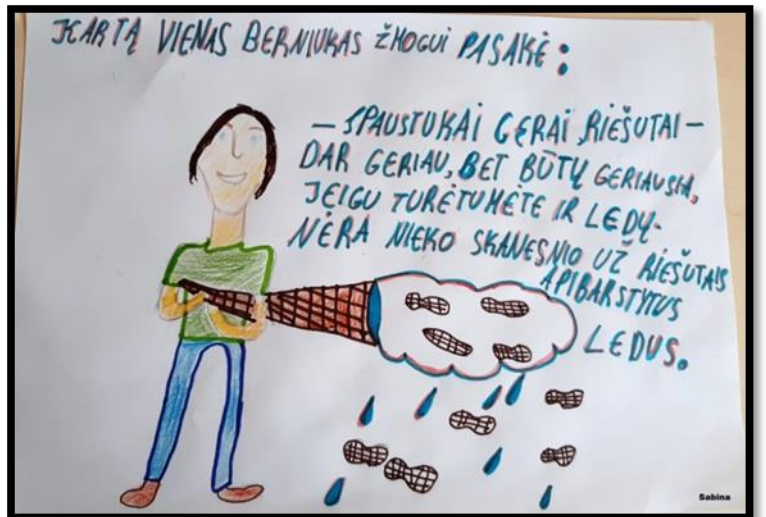 KARTĄ VIENAS BERNIUKAS ŽMOGUI PASAKĖ:
– SPAUSTUKAI GERAI, RIEŠUTAI –
DAR GERIAU, BET BŪTŲ GERIAUSIA,
JEIGU TURĖTUMĖTE IR LEDŲ.
NĖRA NIEKO SKANESNIO UŽ RIEŠUTAIS
APIBARSTYTUS
LEDUS.
Sabina